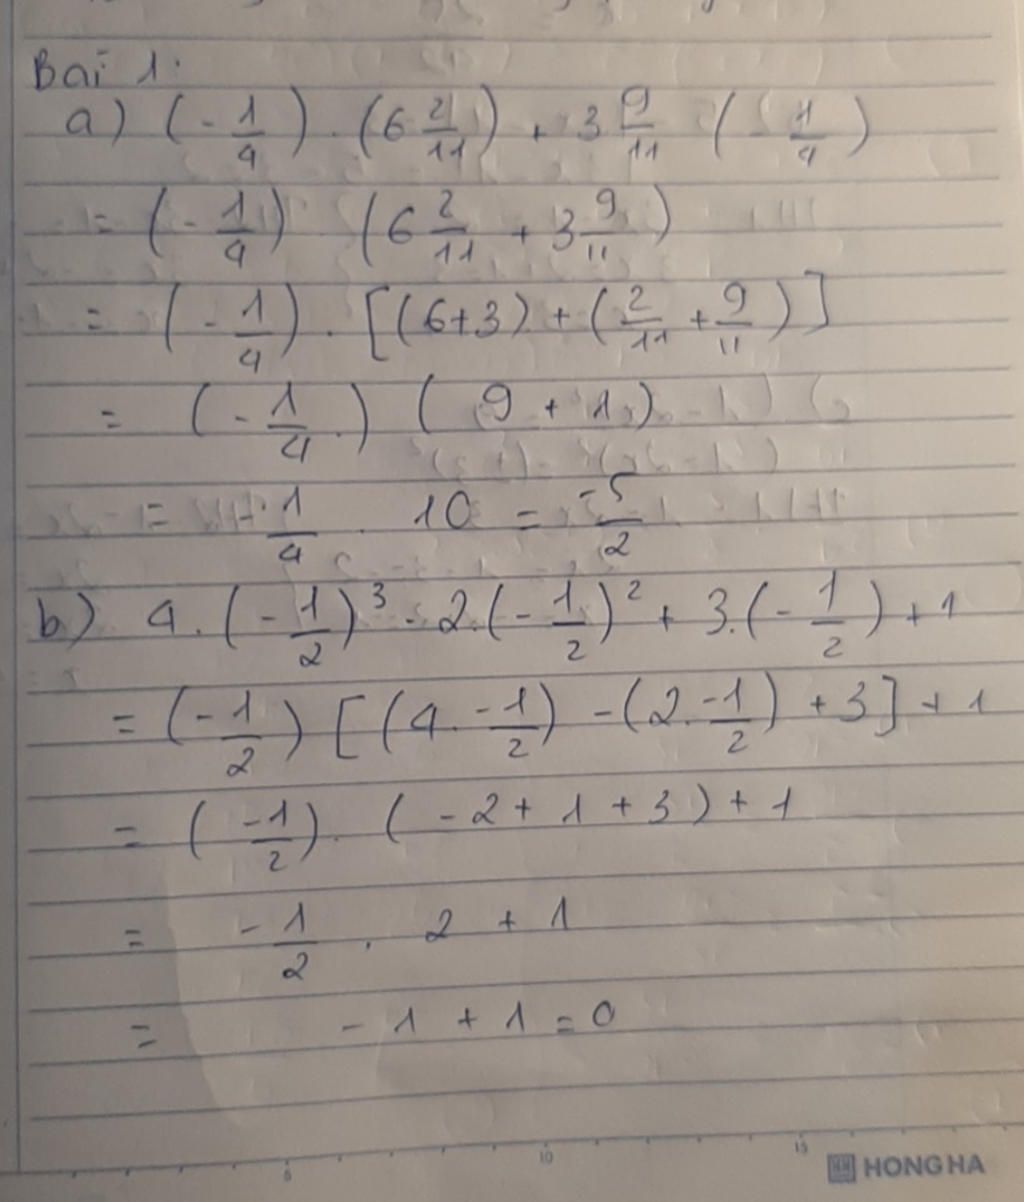 Bài 1:
a) (-1/4) . (6 2/11) + 3 9/11 (-1/4)
= (-1/4) (6 2/11 + 3 9/11)
= (-1/4) . [(6+3) + (2/11 + 9/11)]
= (-1/4.) (9 + 1)
= -1/4 . 10 = -5/2
b) 4.(-1/2)³ - 2.(-1/2)² + 3.(-1/2) + 1
= (-1/2) [(4. -1/2) - (2. -1/2) + 3] + 1
= (-1/2) . (-2 + 1 + 3) + 1
= -1/2 . 2 + 1
= -1 + 1 = 0
5 10 15
HH HONG HA